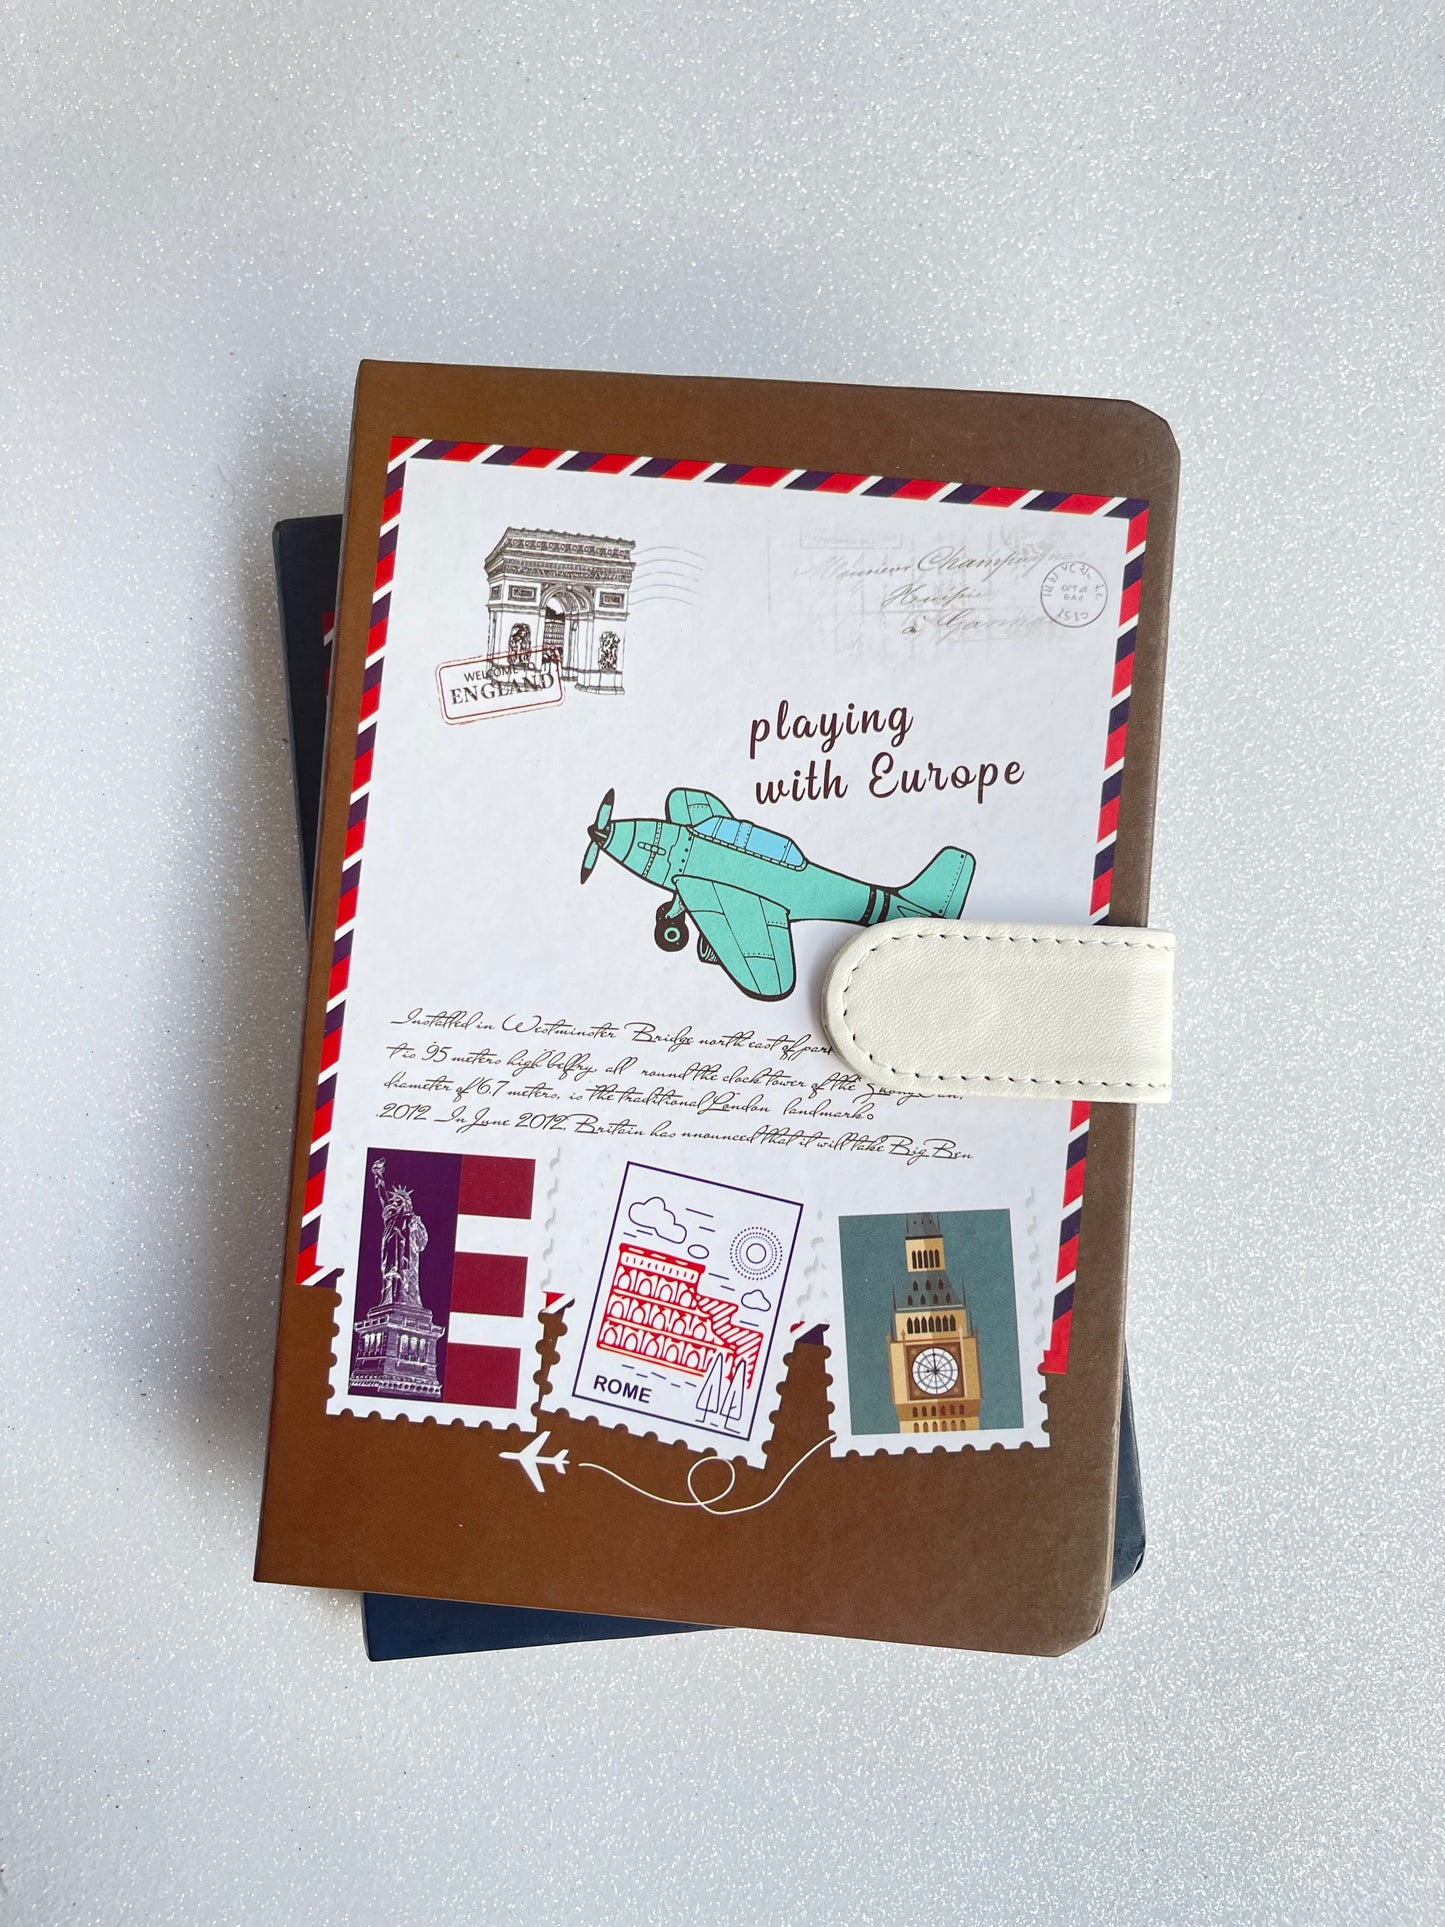 WELCOME TO
ENGLAND
Monsieur Champagnac
Huissier
à Gannat
playing
with Europe
Installed in Westminster Bridge north east of parl
t is 95 meters high belfry, all round the clock tower of the
diameter of 6.7 meters, is the traditional London landmark。
2012 In June 2012, Britain has nnounced that it will take Big Ben
ROME